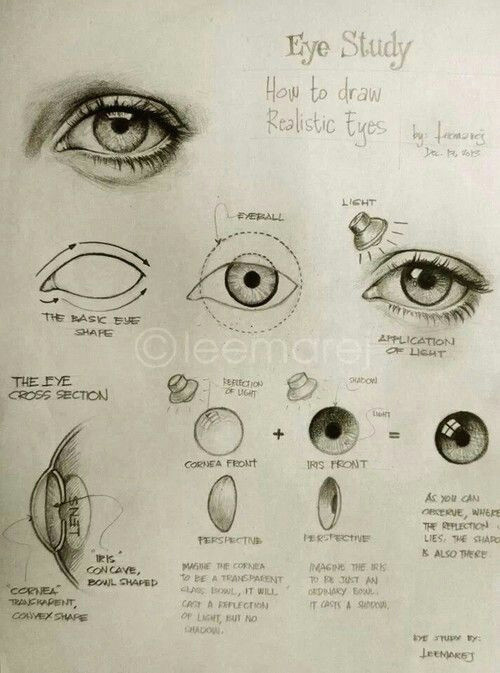 Eye Study
How to draw
Realistic Eyes
by: leemarej
Dec. 13, 2013
EYEBALL
LIGHT
THE BASIC EYE
SHAPE
APPLICATION
OF LIGHT
©leemarej
THE EYE
CROSS SECTION
REFLECTION
OF LIGHT
SHADOW
LIGHT
+
=
CORNEA FRONT
IRIS FRONT
PERSPECTIVE
PERSPECTIVE
LENS
"IRIS"
CONCAVE,
BOWL SHAPED
"CORNEA"
TRANSPARENT,
CONVEX SHAPE
IMAGINE THE CORNEA
TO BE A TRANSPARENT
GLASS BOWL, IT WILL
CAST A REFLECTION
OF LIGHT, BUT NO
SHADOW.
IMAGINE THE IRIS
TO BE JUST AN
ORDINARY BOWL.
IT CASTS A SHADOW.
AS YOU CAN
OBSERVE, WHERE
THE REFLECTION
LIES, THE SHADO
IS ALSO THERE.
EYE STUDY BY:
LEEMAREJ